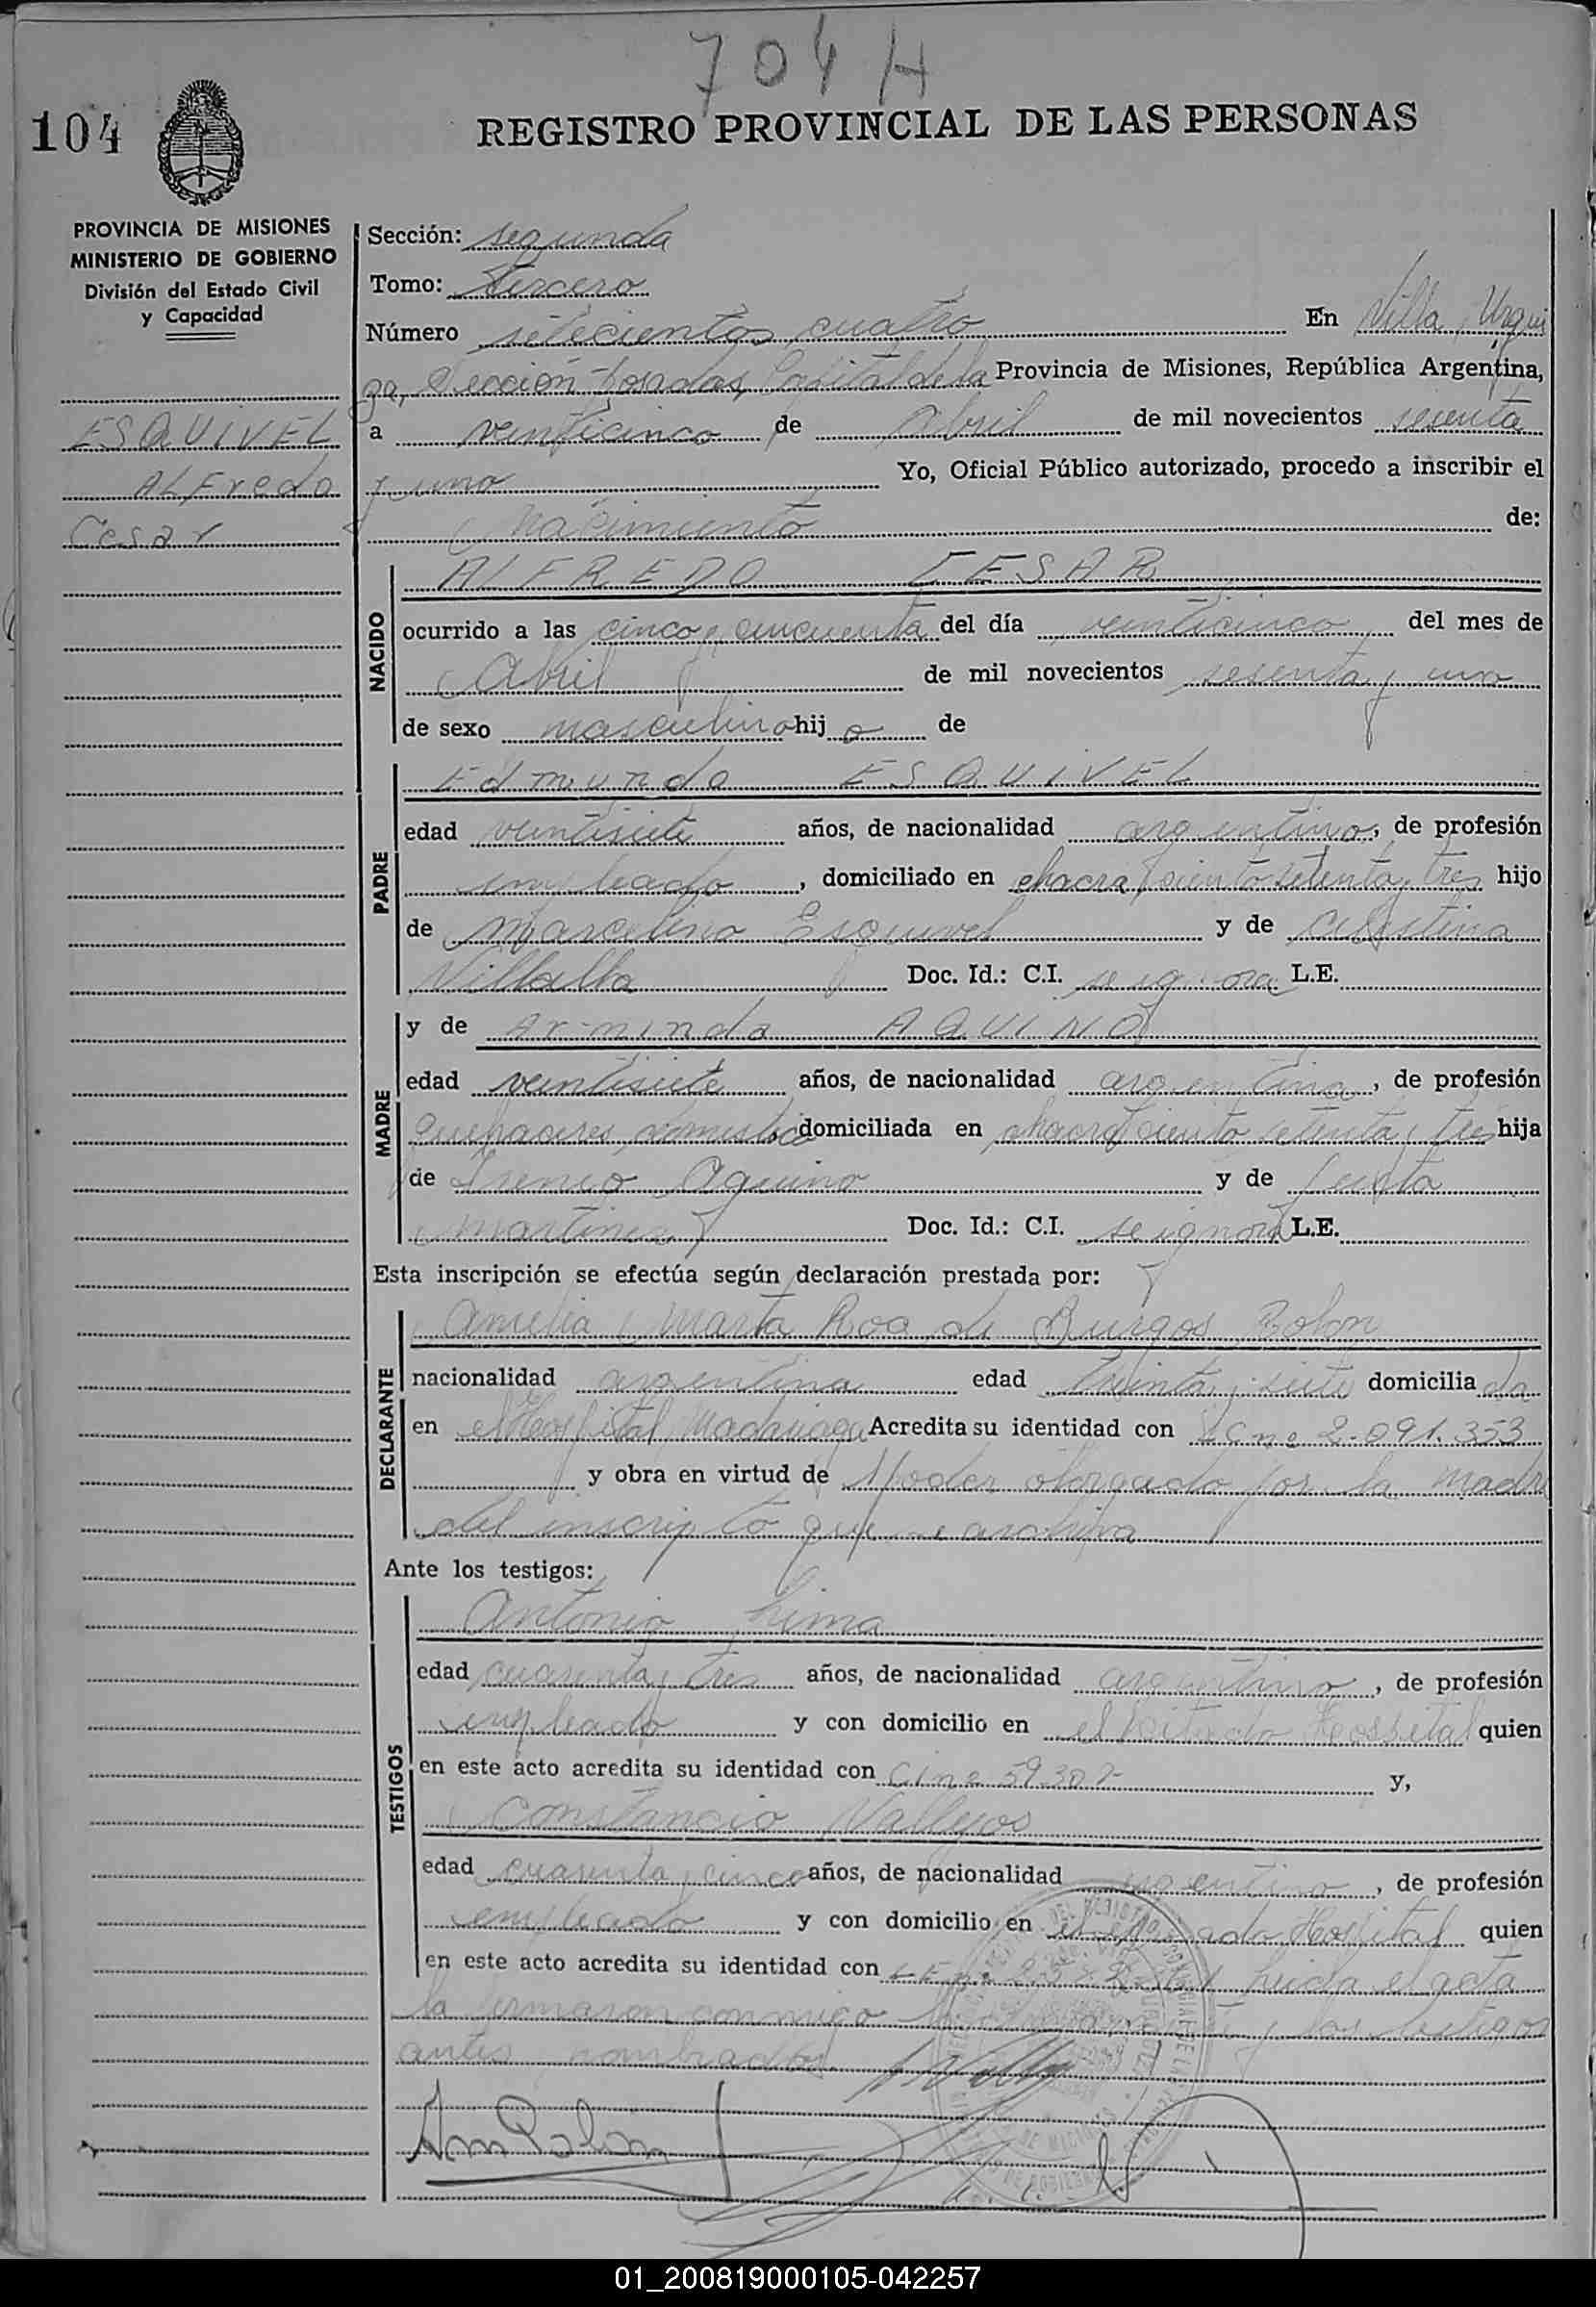 704 H
104
REGISTRO PROVINCIAL DE LAS PERSONAS
PROVINCIA DE MISIONES
MINISTERIO DE GOBIERNO
División del Estado Civil
y Capacidad
ESQUIVEL
ALFredo
Cesar
Sección: segunda
Tomo: tercero
Número setecientos cuatro En Villa Urqui
za, Sección Posadas, Capital de la Provincia de Misiones, República Argentina,
a veinticinco de Abril de mil novecientos sesenta
y uno Yo, Oficial Público autorizado, procedo a inscribir el
Nacimiento de:
NACIDO
ALFREDO CESAR
ocurrido a las cinco y cincuenta del día veinticinco del mes de
Abril de mil novecientos sesenta y uno
de sexo masculino hijo de
PADRE
Edmundo ESQUIVEL
edad veintisiete años, de nacionalidad argentino, de profesión
empleado, domiciliado en chacra ciento setenta y tres hijo
de Marcelino Esquivel y de Celestina
Villalba Doc. Id.: C.I. se ignora L.E.
MADRE
y de Arminda AQUINO
edad veintisiete años, de nacionalidad argentina, de profesión
quehaceres domésticos domiciliada en chacra ciento setenta y tres hija
de Ireneo Aquino y de Justa
Martinez Doc. Id.: C.I. se ignora L.E.
Esta inscripción se efectúa según declaración prestada por:
DECLARANTE
Amelia Marta Roa de Burgos Bolon
nacionalidad argentina edad treinta y siete domiciliada
en el Hospital Madariaga Acredita su identidad con LC nº 2.091.353
y obra en virtud de Poder otorgado por la madre
del inscripto que se archiva
Ante los testigos:
TESTIGOS
Antonio Lima
edad cuarenta y tres años, de nacionalidad argentino, de profesión
empleado y con domicilio en el citado Hospital quien
en este acto acredita su identidad con CI nº y,
Constancio Vallejos
edad cuarenta y cinco años, de nacionalidad argentino, de profesión
empleado y con domicilio en el Hospital quien
en este acto acredita su identidad con LE nº leida el acta
la firmaron conmigo y los testigos
antes nombrados.
01_200819000105-042257